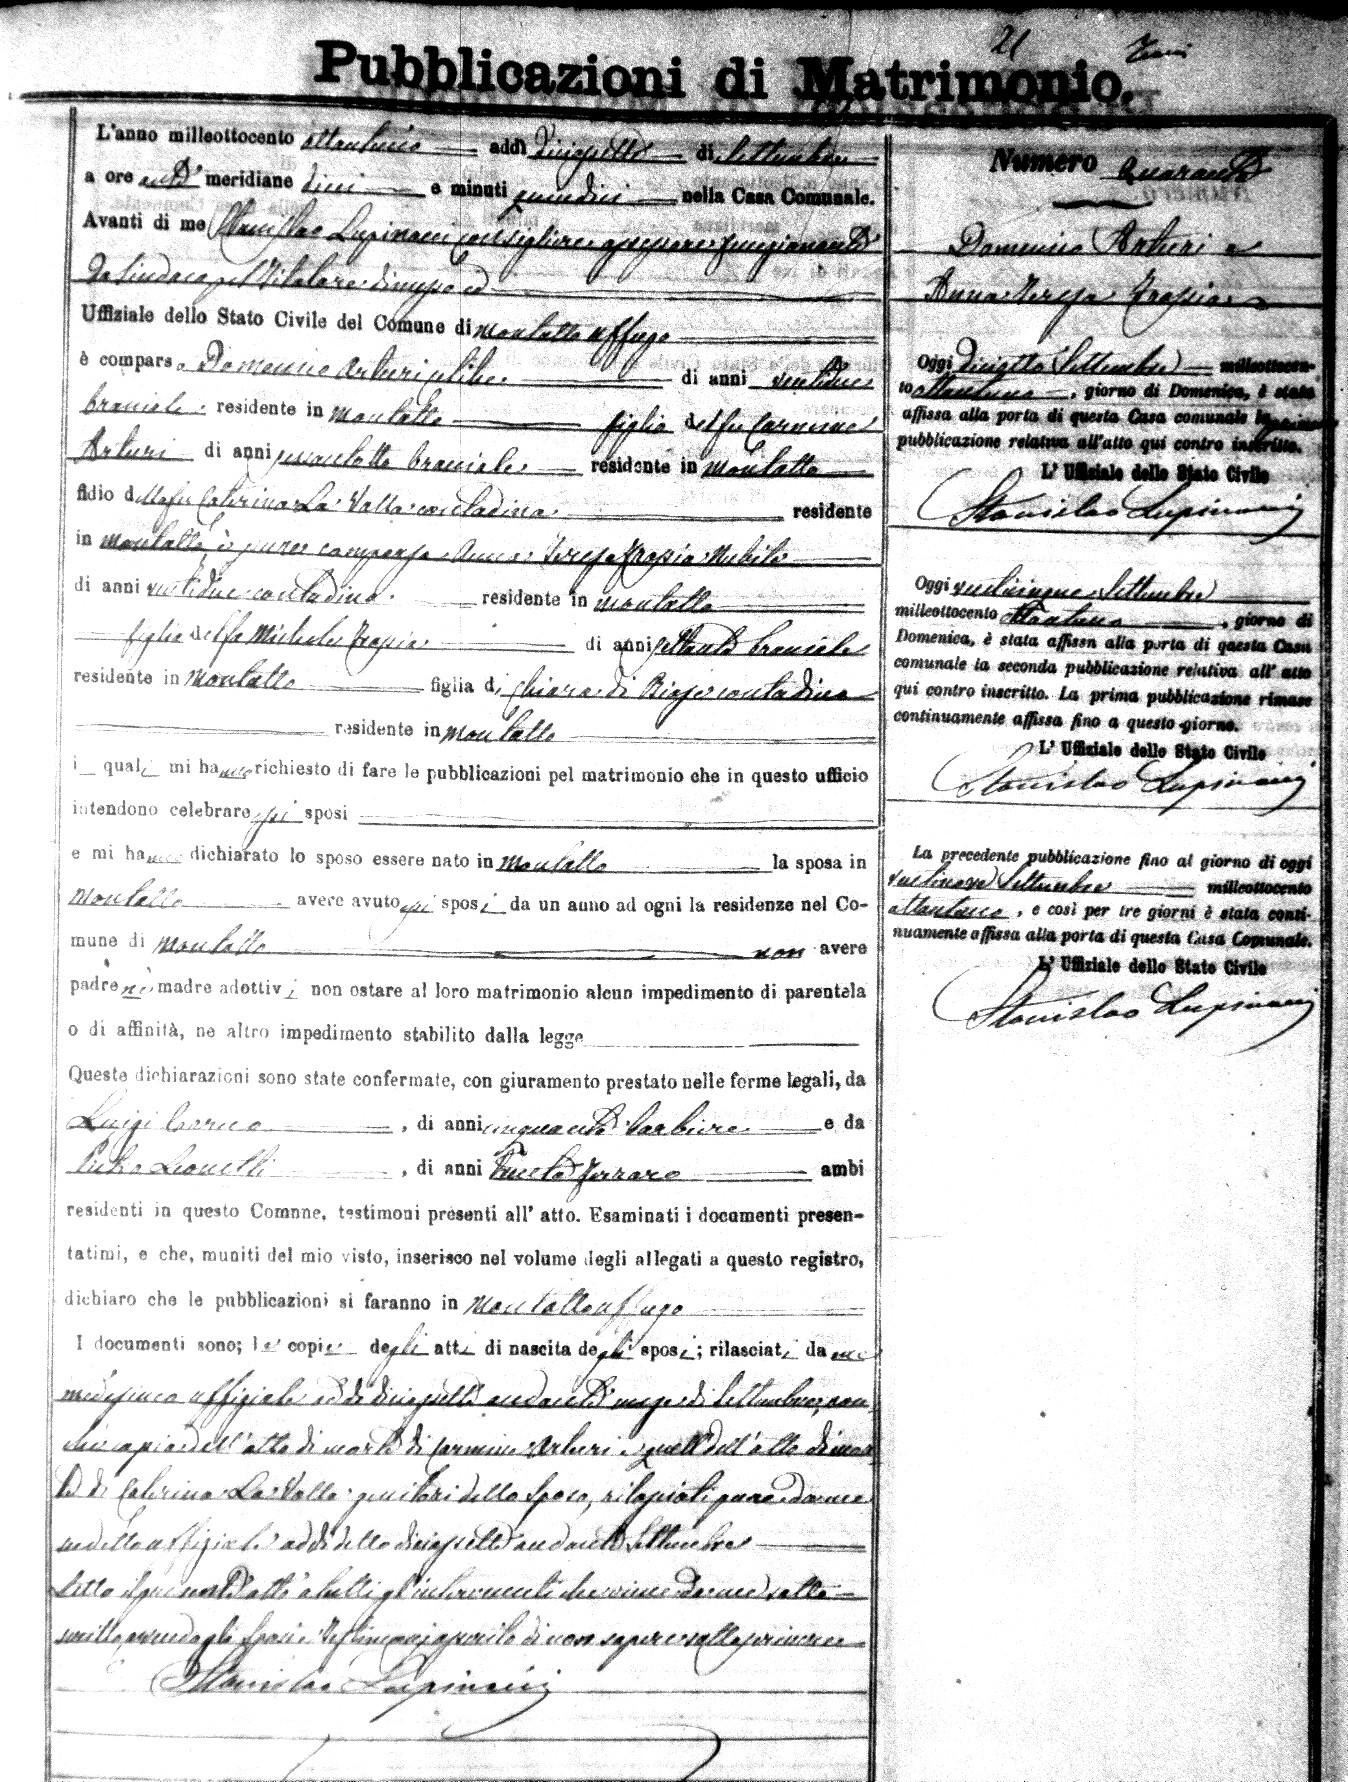 21
Pubblicazioni di Matrimonio.
L'anno milleottocento ottantuno addì diciassette di Settembre
a ore anti meridiane dieci e minuti quindici nella Casa Comunale.
Avanti di me Stanislao Lupinacci consigliere assessore funzionante
da Sindaco pel titolare dimesso ed
Uffiziale dello Stato Civile del Comune di Montalto Uffugo
è comparso Domenico Arturi celibe di anni ventidue
bracciale residente in Montalto figlio del fu Carmine
Arturi di anni residente in Montalto
fidio della fu Caterina La Valle contadina residente
in Montalto, è pure comparsa Anna Teresa Trosia nubile
di anni ventidue contadina residente in Montalto
figlia del fu Michele Trosia di anni settanta bracciale
residente in Montalto figlia di Chiara di Biase contadina
residente in Montalto
i quali mi hanno richiesto di fare le pubblicazioni pel matrimonio che in questo ufficio
intendono celebrare essi sposi
e mi hanno dichiarato lo sposo essere nato in Montalto la sposa in
Montalto avere avuto essi sposi da un anno ad ogni la residenze nel Co-
mune di Montalto non avere
padre nè madre adottivi non ostare al loro matrimonio alcun impedimento di parentela
o di affinità, ne altro impedimento stabilito dalla legge
Queste dichiarazioni sono state confermate, con giuramento prestato nelle forme legali, da
Luigi, di anni cinquanta barbiere e da
Pietro Leonetti, di anni trenta ferraro ambi
residenti in questo Comnne, testimoni presenti all' atto. Esaminati i documenti presen-
tatimi, e che, muniti del mio visto, inserisco nel volume degli allegati a questo registro,
dichiaro che le pubblicazioni si faranno in Montalto Uffugo
I documenti sono; le copie degli atti di nascita degli sposi; rilasciati da me
medesimo uffiziale addì diciassette andante mese di Settembre, non
che copia dell'atto di morte di Carmine Arturi e quell dell'atto di mor
te di Caterina La Valle genitori dello Sposo, rilasciati pure da me
sudetto uffiziale addì detto diciassette andante Settembre
Letto il presente atto a tutti gl'intervenuti che viene da me sotto
scritto avendo gli Sposi e Testimoni asserito di non sapere sottoscrivere
Stanislao Lupinacci
Numero Quaranta
Domenico Arturi e
Anna Teresa Trosia
Oggi diciotto Settembre milleottocen-
to ottantuno, giorno di Domenica, è stata
affissa alla porta di questa Casa comunale la prima
pubblicazione relativa all'atto qui contro inscritto.
L' Uffiziale dello Stato Civile
Stanislao Lupinacci
Oggi venticinque Settembre
milleottocento ottantuno, giorno di
Domenica, è stata affissa alla porta di questa Casa
comunale la seconda pubblicazione relativa all' atto
qui contro inscritto. La prima pubblicazione rimase
continuamente affissa fino a questo giorno.
L' Uffiziale dello Stato Civile
Stanislao Lupinacci
La precedente pubblicazione fino al giorno di oggi
ventinove Settembre milleottocento
ottantuno, e così per tre giorni è stata conti-
nuamente affissa alla porta di questa Casa Comunale.
L' Uffiziale dello Stato Civile
Stanislao Lupinacci